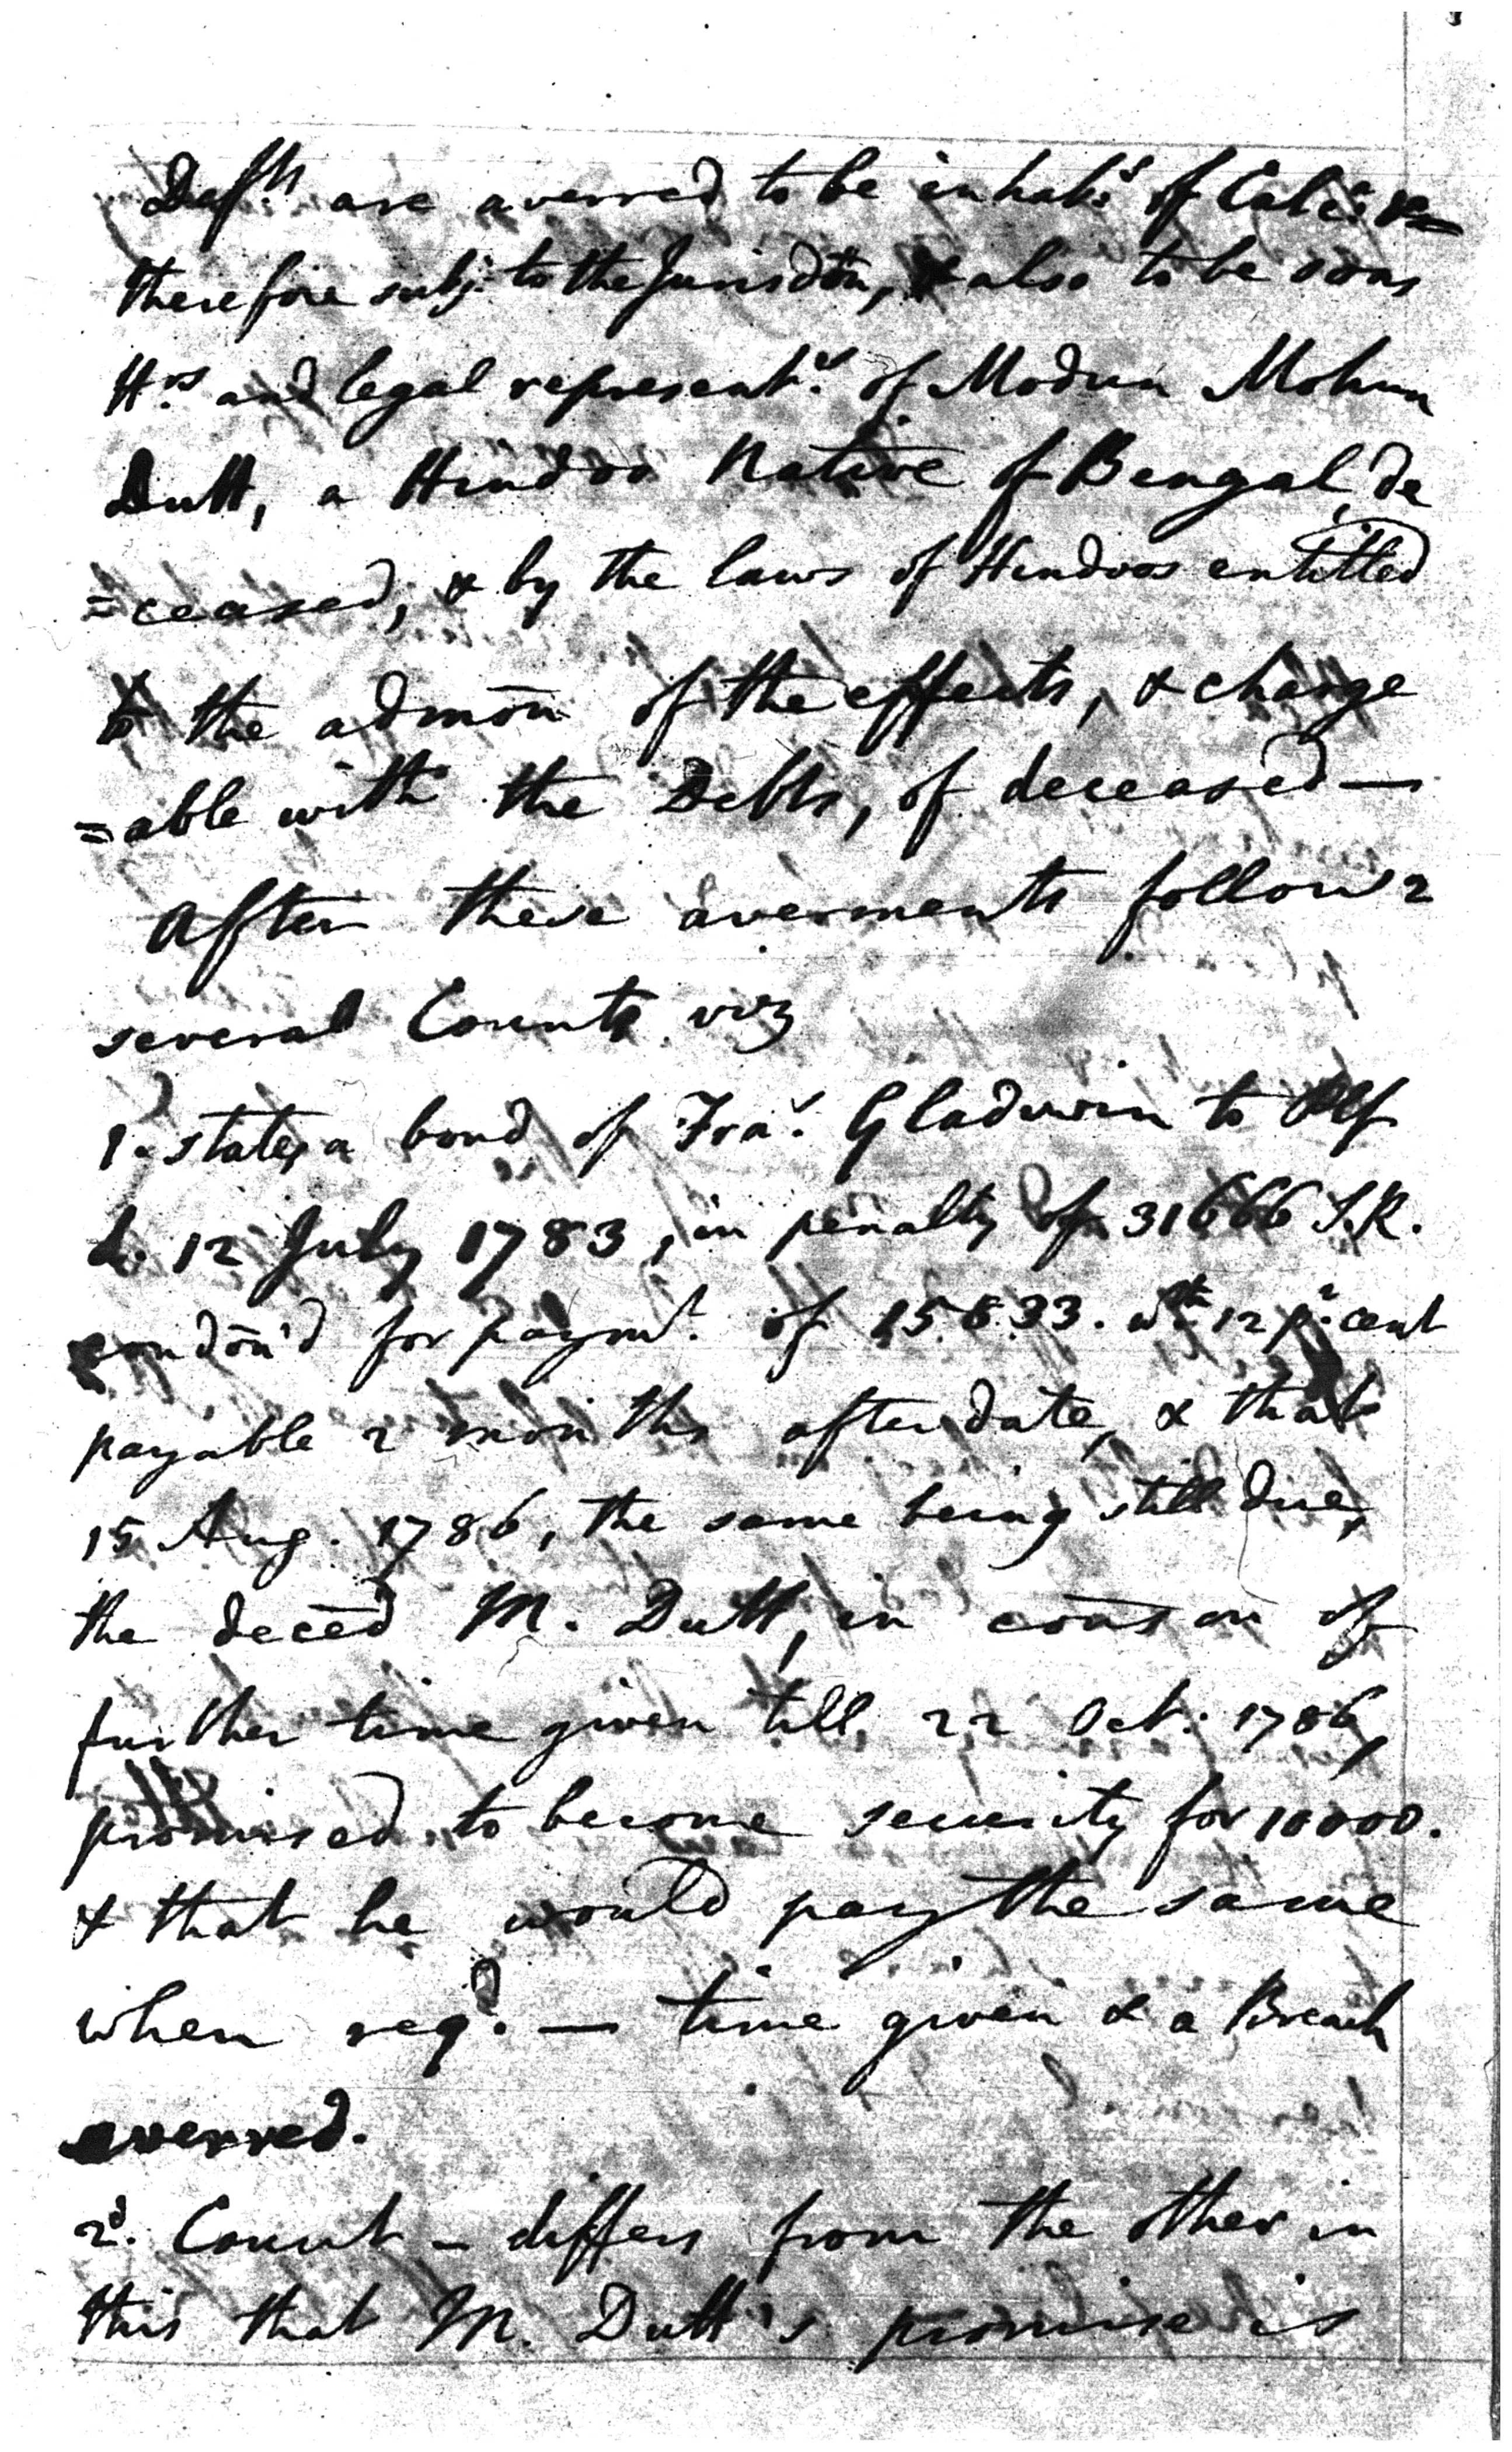 Defts. are averred to be inhabs. of Calca. &
therefore subj. to the Jurisdōn, & also to be sons
Hrs. and legal represents. of Modun Mohun
Dutt, a Hindoo Native of Bengal, de
=ceased, & by the laws of Hindoos entitled
to the admōn of the effects, & charge
=able with the Debts, of deceased —
After these averments follow 2
several Counts viz
1. states a bond of Fras. Gladwin to Plf
d. 12 July 1783, in penalty of 31666 S.R.
condōn'd for paymt. of 15.833. wth 12 pr. cent
payable 2 months after date, & that
15 Aug. 1786, the same being still due,
the decēd M. Dutt, in consōn of
further time given till 22 Oct. 1786,
promised to become security for 10000.
& that he would pay the same
when reqd. — time given & a Breach
averred.
2d. Count — differs from the other in
this that M. Dutt's promise is